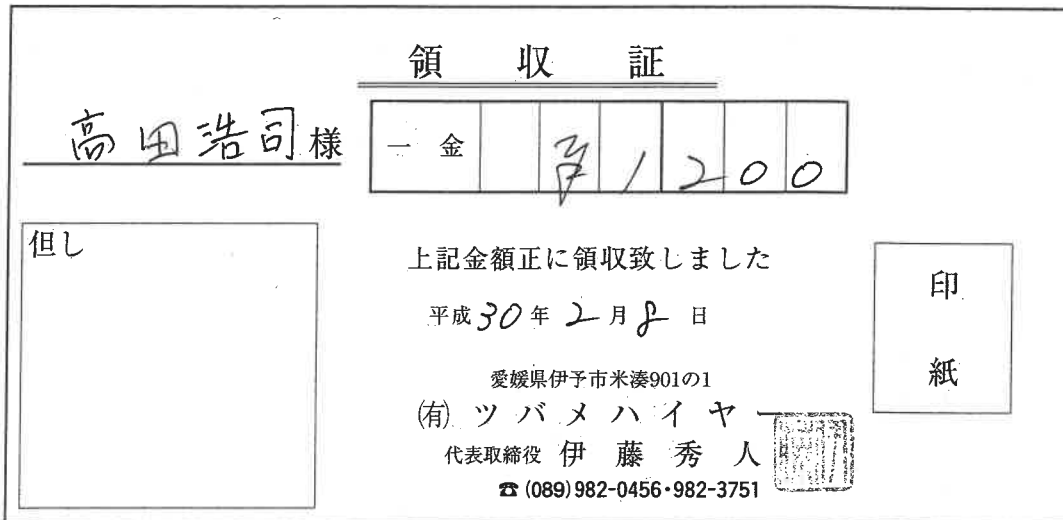 領収証
高田浩司様
一金 ¥1200
但し
上記金額正に領収致しました
平成30年2月8日
印紙
愛媛県伊予市米湊901の1
㈲ツバメハイヤー
代表取締役 伊藤秀人
☎(089)982-0456・982-3751